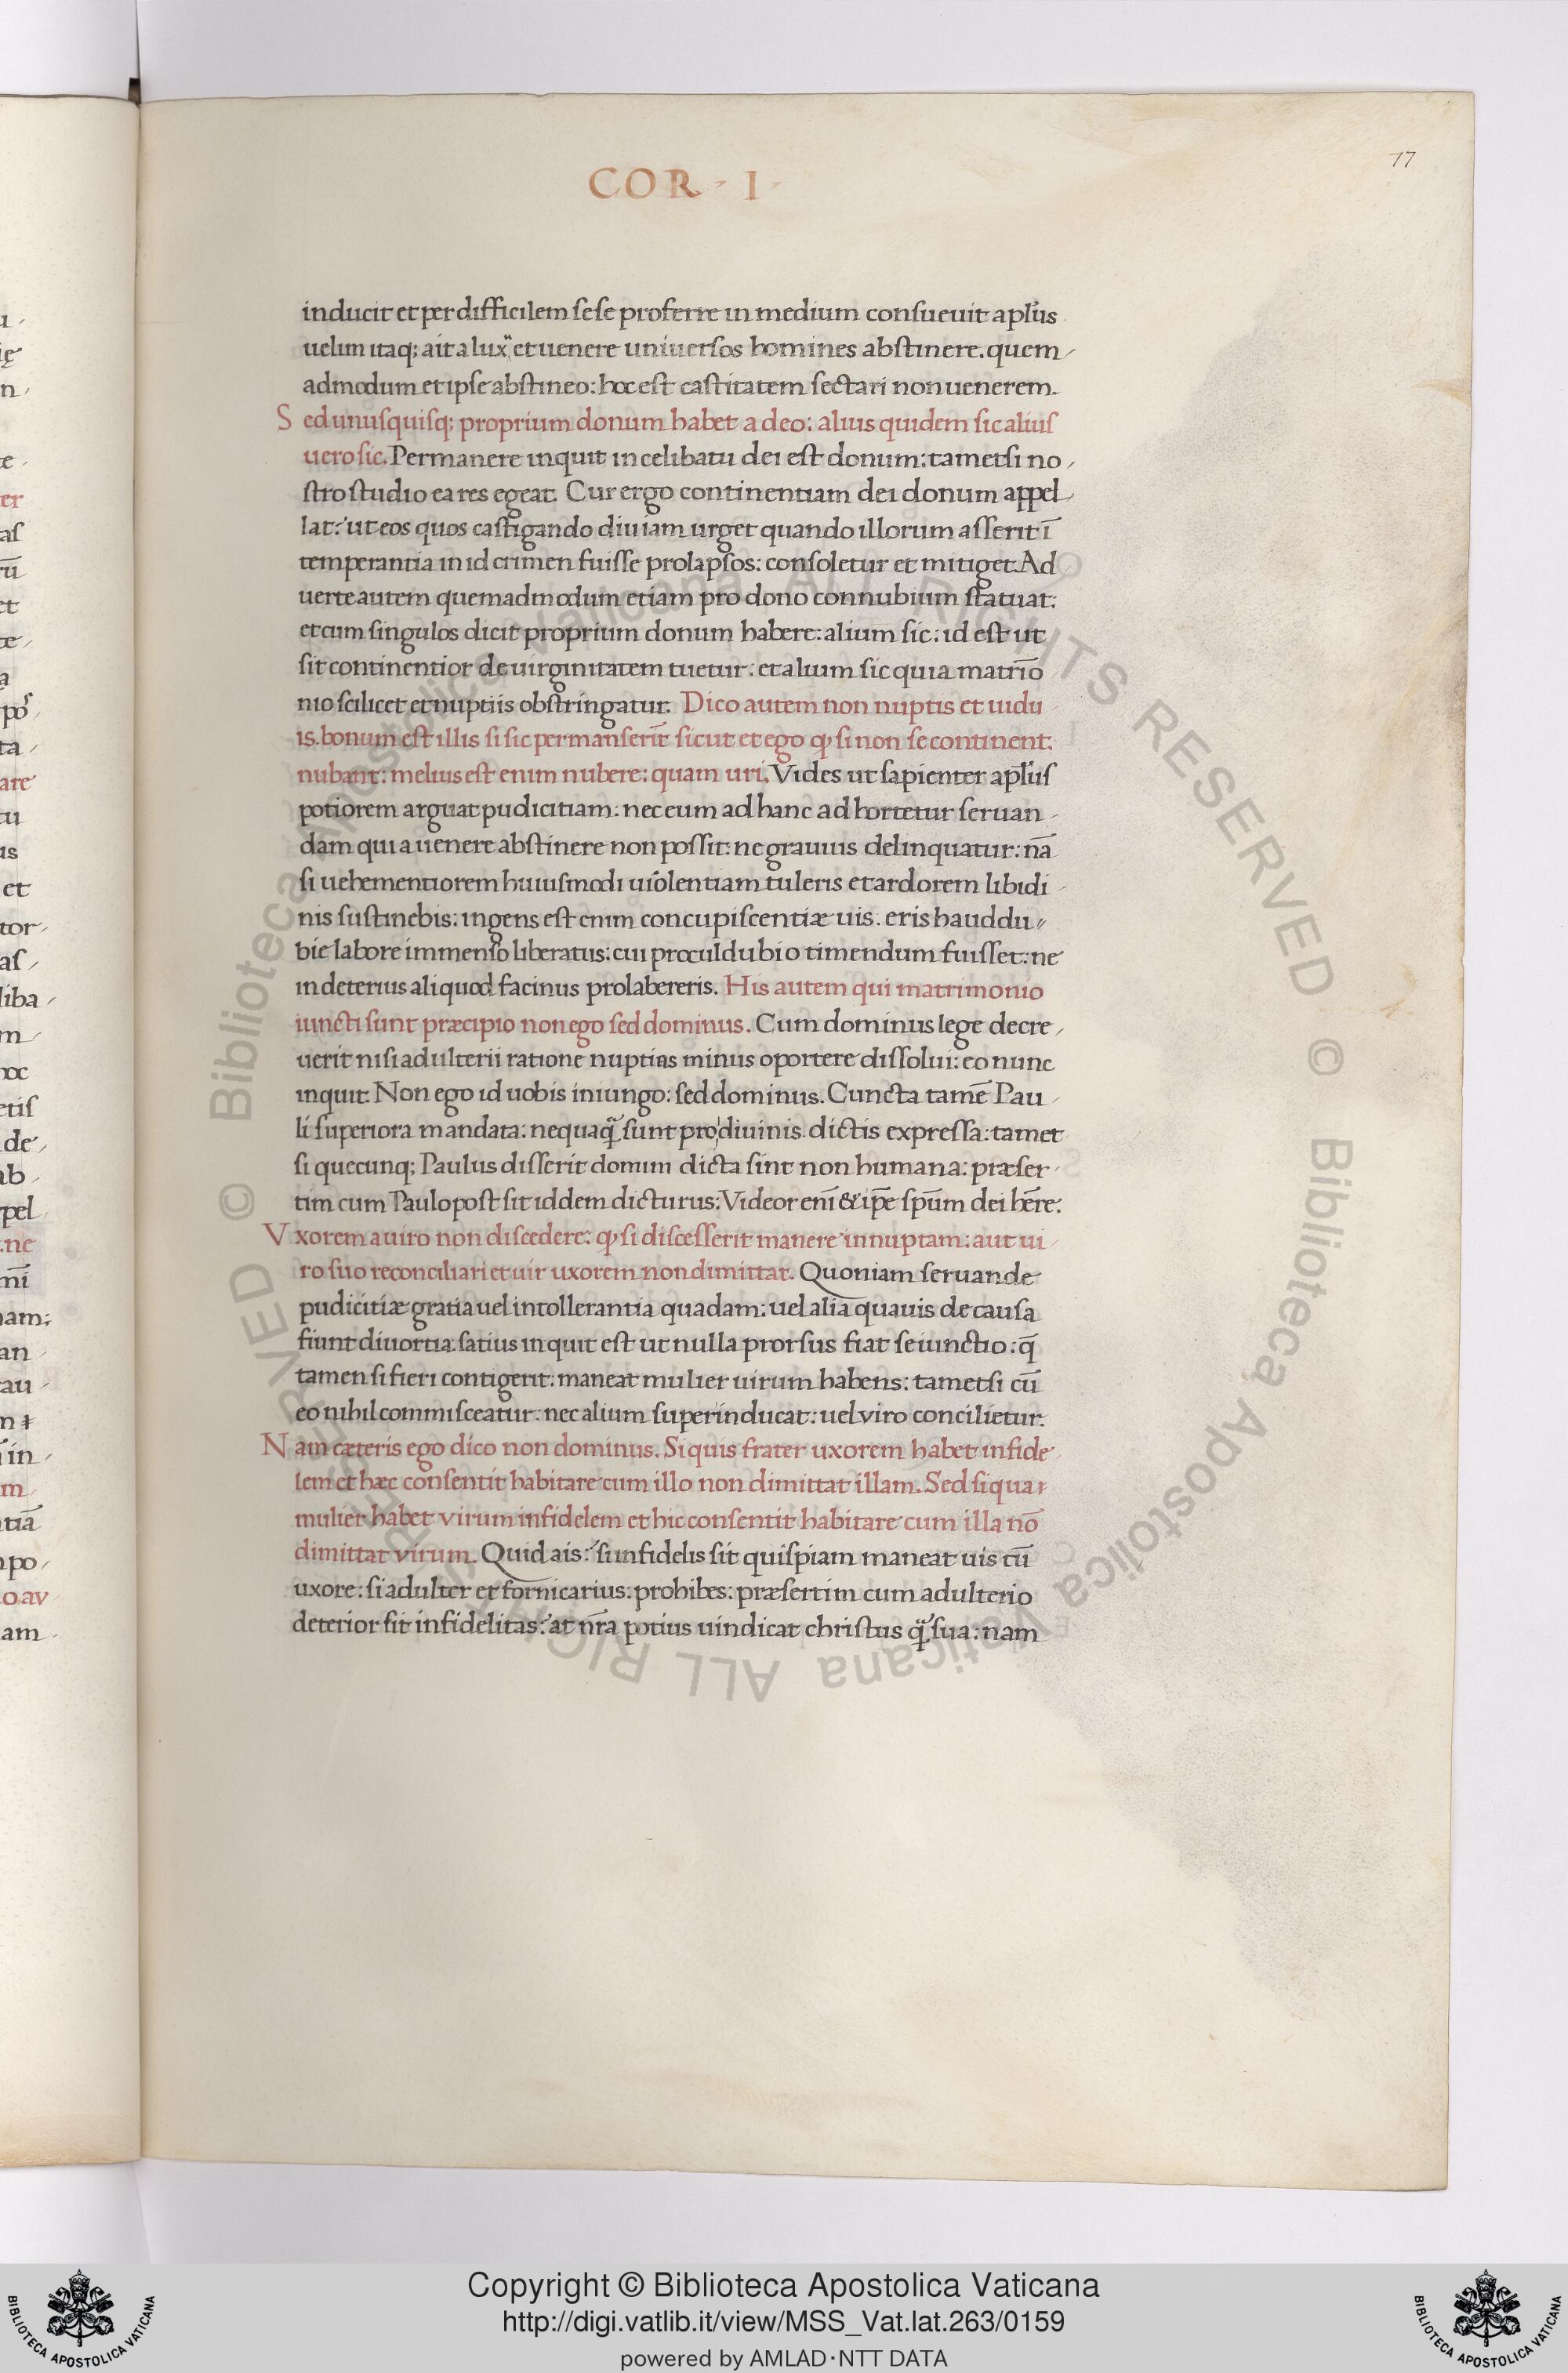 COR · I ·
77
inducit et per difficilem sese proferre in medium consueuit apl̃us
uelim itaq; ait a lux̃ et uenere uniuersos homines abstinere. quem
admodum et ipse abstineo: hoc est castitatem sectari non uenerem.
Sed unusquisq; proprium donum habet a deo: alius quidem sic alius
uero sic. Permanere inquit in celibatu dei est donum: tametsi no
stro studio ea res egeat. Cur ergo continentiam dei donum appel
lat? ut eos quos castigando diuiam urget quando illorum asserit ī
temperantia in id crimen fuisse prolapsos: consoletur et mitiget. Ad
uerte autem quemadmodum etiam pro dono connubium statuat:
et cum singulos dicit proprium donum habere: alium sic: id est ut
sit continentior de uirginitatem tuetur: et alium sic quia matrīo
nio scilicet et nuptiis obstringatur. Dico autem non nuptis et uidu
is. bonum est illis si sic permanserīt sicut et ego ꝙ si non se continent:
nubant: melius est enim nubere: quam uri. Vides ut sapienter apl̃us
potiorem arguat pudicitiam: nec eum ad hanc ad hortetur seruan
dam qui a uenere abstinere non possit: ne grauius delinquatur: nā
si uehementiorem huiusmodi uiolentiam tuleris et ardorem libidi
nis sustinebis: ingens est enim concupiscentiæ uis. eris hauddu
bie labore immenso liberatus: cui proculdubio timendum fuisset: ne
in deterius aliquod facinus prolabereris. His autem qui matrimonio
iuncti sunt præcipio non ego sed dominus. Cum dominus lege decre
uerit nisi adulterii ratione nuptias minus oportere dissolui: eo nunc
inquit. Non ego id uobis iniungo: sed dominus. Cuncta tamē Pau
li superiora mandata: nequaq̃ sunt pro diuinis dictis expressa: tamet
si quecunq; Paulus disserit domini dicta sint non humana: præser
tim cum Paulo post sit iddem dicturus: Videor enī & ip̄e sp̄um dei hēre:
Vxorem a uiro non discedere: ꝙ si discesserit manere innuptam: aut ui
ro suo reconciliari et uir uxorem non dimittat. Quoniam seruande
pudicitiæ gratia uel intollerantia quadam: uel alia quauis de causa
fiunt diuortia: satius inquit est ut nulla prorsus fiat seiunctio: q̄
tamen si fieri contigerit: maneat mulier uirum habens: tametsi cū
eo nihil commisceatur: nec alium superinducat: uel viro concilietur.
Nam cæteris ego dico non dominus. Si quis frater uxorem habet infide
lem et hæc consentit habitare cum illo non dimittat illam. Sed si qua
mulier habet virum infidelem et hic consentit habitare cum illa nō
dimittat virum. Quid ais? si infidelis sit quispiam maneat uis cū
uxore: si adulter et fornicarius: prohibes: præsertim cum adulterio
deterior sit infidelitas? at nr̄a potius uindicat christus q̃ sua: nam
Copyright © Biblioteca Apostolica Vaticana
http://digi.vatlib.it/view/MSS_Vat.lat.263/0159
powered by AMLAD·NTT DATA